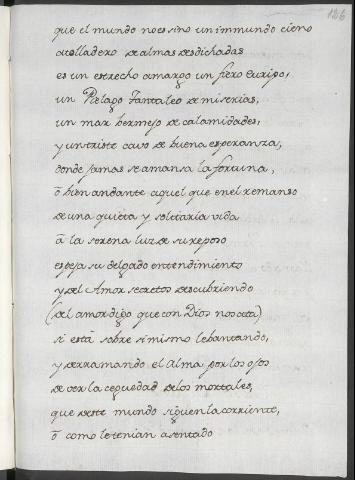 126
que el mundo no es sino un inmundo cieno
atolladero de almas desdichadas
es un estrecho amargo un fiero euripo,
un Pielago Tantaleo de miserias,
un mar bermejo de calamidades,
y un triste cavo de buena esperanza,
donde jamas se amansa la fortuna,
ô bien andante aquel que en el remanso
de una quieta y solitaria vida
â la serena luz de su reposo
espeja su delgado entendimiento
y del Amor secretos descubriendo
(del amor digo que con Dios nos ata)
si está sobre si mismo lebantando,
y derramando el Alma por los ojos
de ver la ceguedad de los mortales,
que deste mundo siguen la corriente,
ô como le tenian asentado